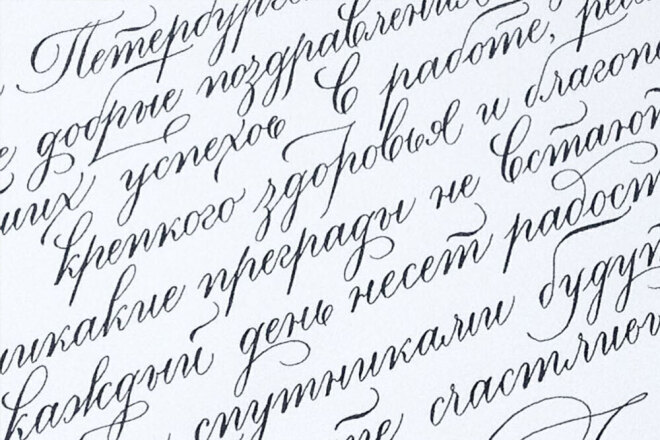 Петербург
е добрые поздравления
ших успехов в работе,
крепкого здоровья и благопо
никакие преграды не встают
каждый день несет радост
спутниками будут
те счастливы